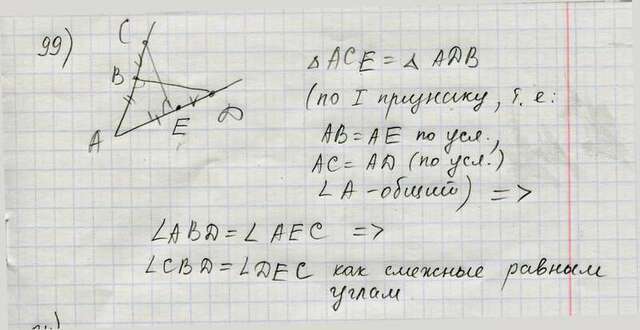 99)
C
B
A
E
D
△ACE = △ADB
(по I признаку, т. е:
AB = AE по усл.,
AC = AD (по усл.)
∠A - общий) =>
∠ABD = ∠AEC =>
∠CBD = ∠DEC как смежные равным
углам